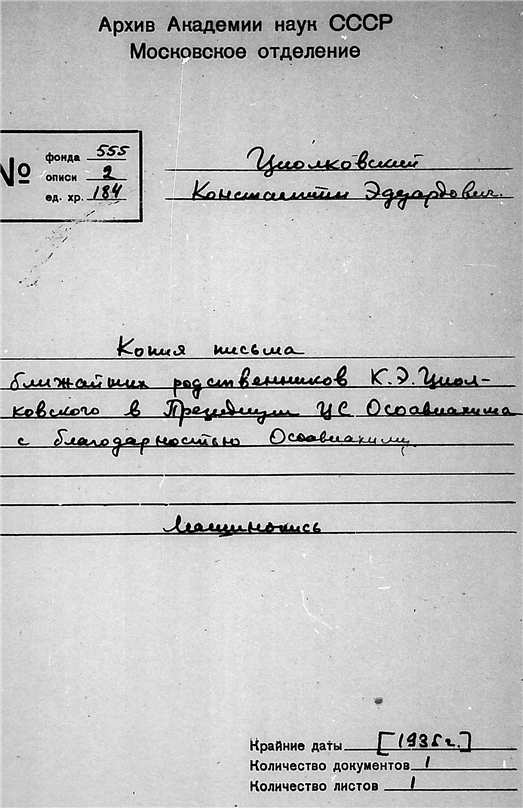 Архив Академии наук СССР
Московское отделение
№
фонда 555
описи 2
ед. хр. 184
Циолковский
Константин Эдуардович.
Копия письма
ближайших родственников К.Э.Циол-
ковского в Президиум ЦС Осоавиахима
с благодарностью Осоавиахиму
Машинопись
Крайние даты [1935г.]
Количество документов 1
Количество листов 1